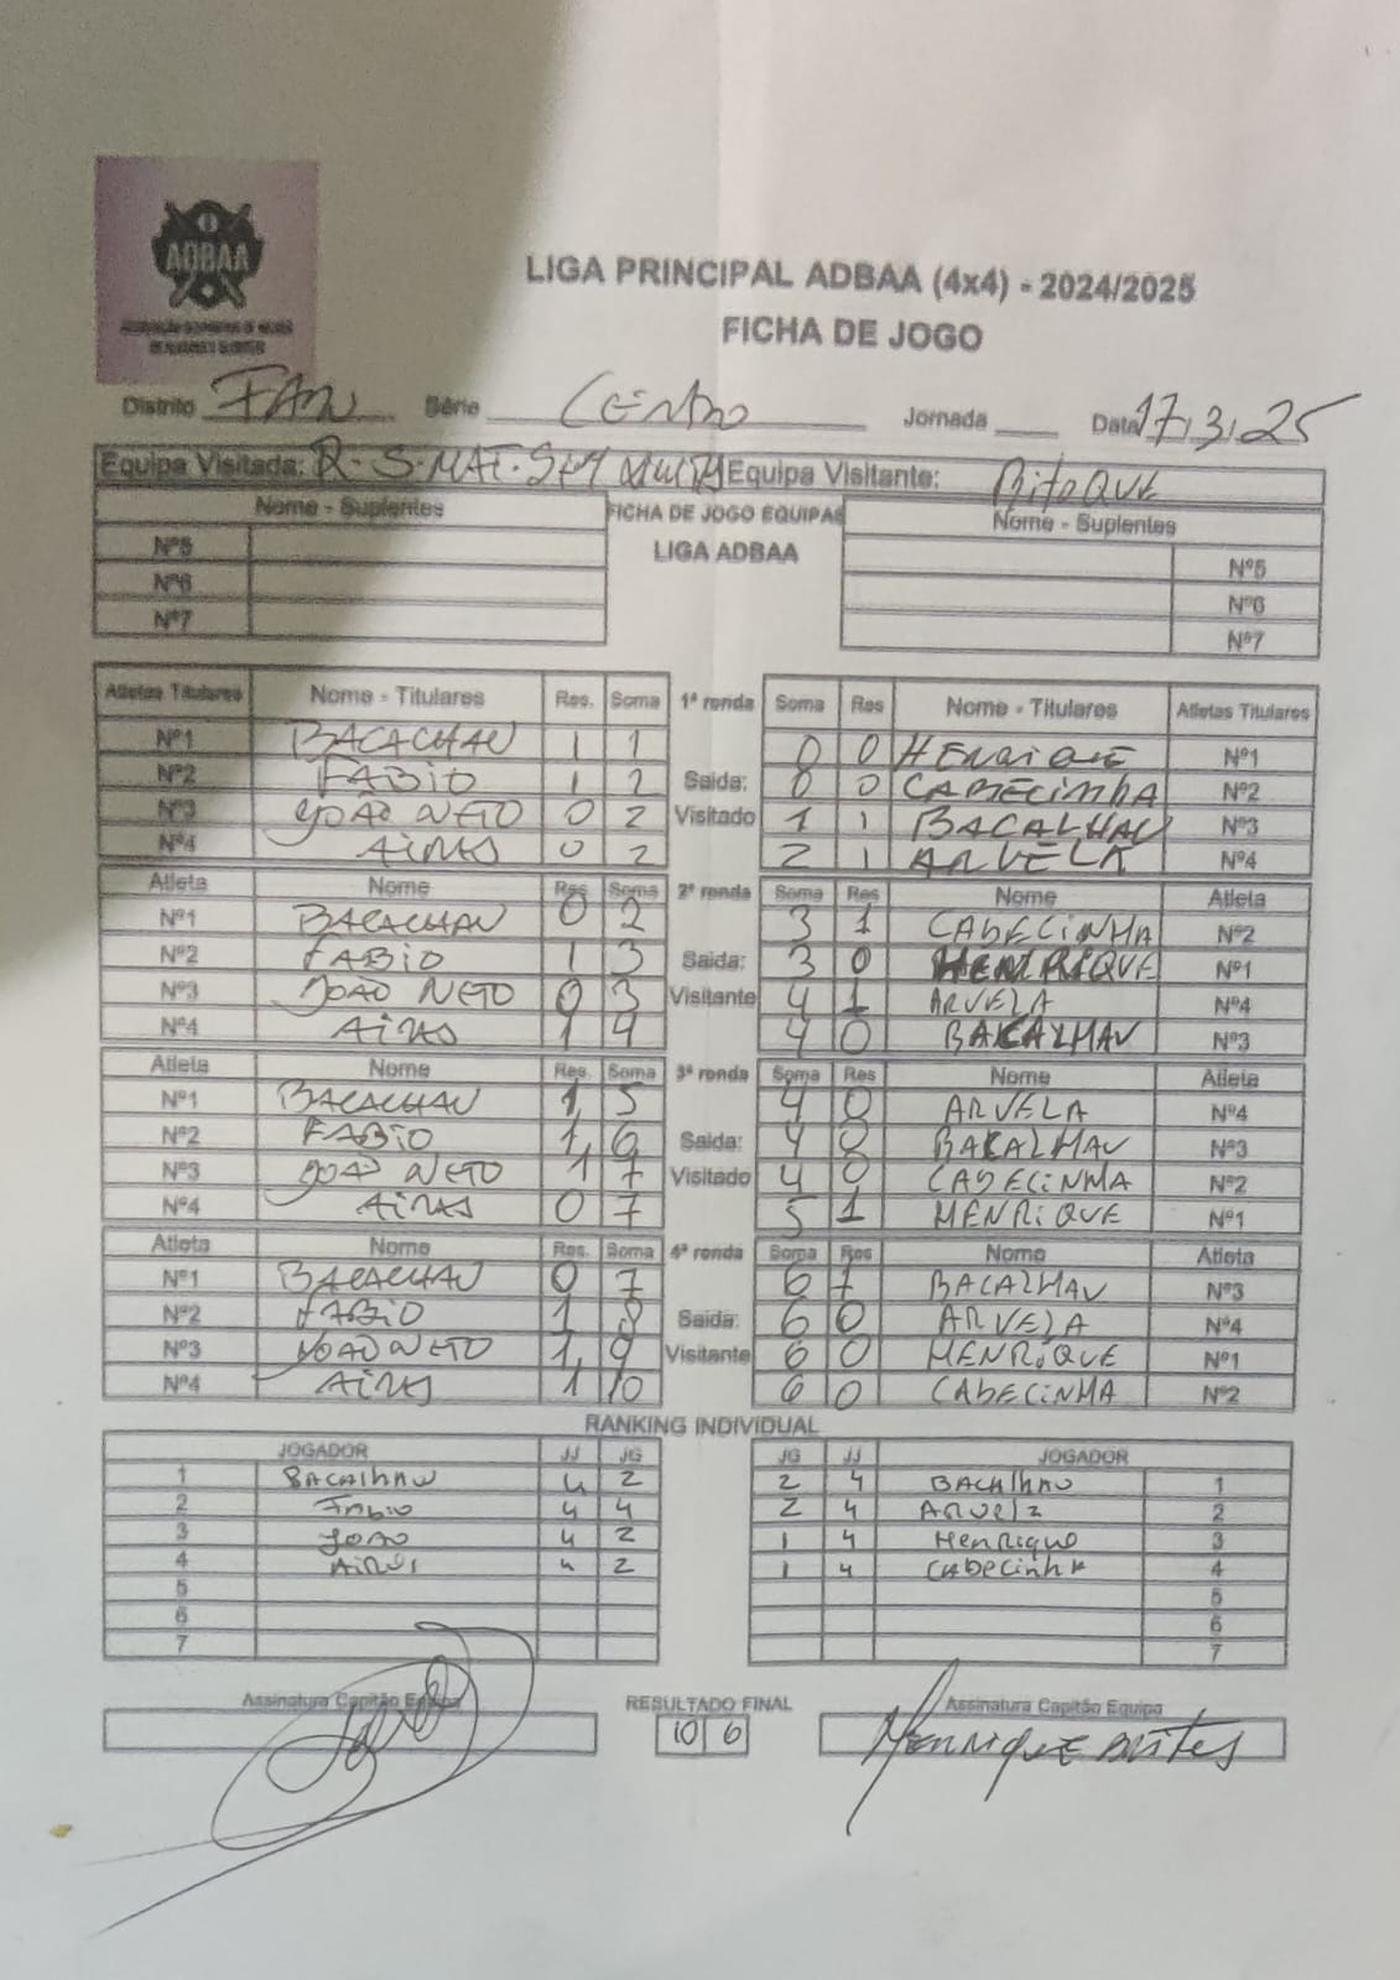 ADBAA
LIGA PRINCIPAL ADBAA (4x4) - 2024/2025
FICHA DE JOGO
Distrito Série Centro Jornada Data 17,3,25
Equipa Visitada: R.S. MAT. Equipa Visitante: BitoQUE
Nome - Suplentes FICHA DE JOGO EQUIPAS Nome - Suplentes
LIGA ADBAA
Nº5 Nº5
Nº6 Nº6
Nº7 Nº7
Atletas Titulares Nome - Titulares Res. Soma 1ª ronda Soma Res Nome - Titulares Atletas Titulares
Nº1 BACALHAU 1 1 0 0 HENRIQUE Nº1
Nº2 FABIO 1 2 Saida: 0 0 CABECINHA Nº2
Nº3 JOÃO NETO 0 2 Visitado 1 1 BACALHAU Nº3
Nº4 AIRES 0 2 2 1 ARVELA Nº4
Atleta Nome Res Soma 2ª ronda Soma Res Nome Atleta
Nº1 BACALHAU 0 2 3 1 CABECINHA Nº2
Nº2 FABIO 1 3 Saida: 3 0 HENRIQUE Nº1
Nº3 JOÃO NETO 0 3 Visitante 4 1 ARVELA Nº4
Nº4 AIRES 1 4 4 0 BACALHAU Nº3
Atleta Nome Res. Soma 3ª ronda Soma Res Nome Atleta
Nº1 BACALHAU 1 5 4 0 ARVELA Nº4
Nº2 FABIO 1 6 Saida: 4 0 BACALHAU Nº3
Nº3 JOÃO NETO 1 7 Visitado 4 0 CABECINHA Nº2
Nº4 AIRES 0 7 5 1 HENRIQUE Nº1
Atleta Nome Res. Soma 4ª ronda Soma Res Nome Atleta
Nº1 BACALHAU 0 7 6 1 BACALHAU Nº3
Nº2 FABIO 1 8 Saida: 6 0 ARVELA Nº4
Nº3 JOÃO NETO 1 9 Visitante 6 0 HENRIQUE Nº1
Nº4 AIRES 1 10 6 0 CABECINHA Nº2
RANKING INDIVIDUAL
JOGADOR JJ JG JG JJ JOGADOR
1 BACAlHAU 4 2 2 4 BACAlHAU 1
2 FABIO 4 4 2 4 ARVELA 2
3 JOAO 4 2 1 4 Henrique 3
4 AIRES 4 2 1 4 CABecinhA 4
5 5
6 6
7 7
Assinatura Capitão Equipa RESULTADO FINAL Assinatura Capitão Equipa
10 6 HENRIQUE